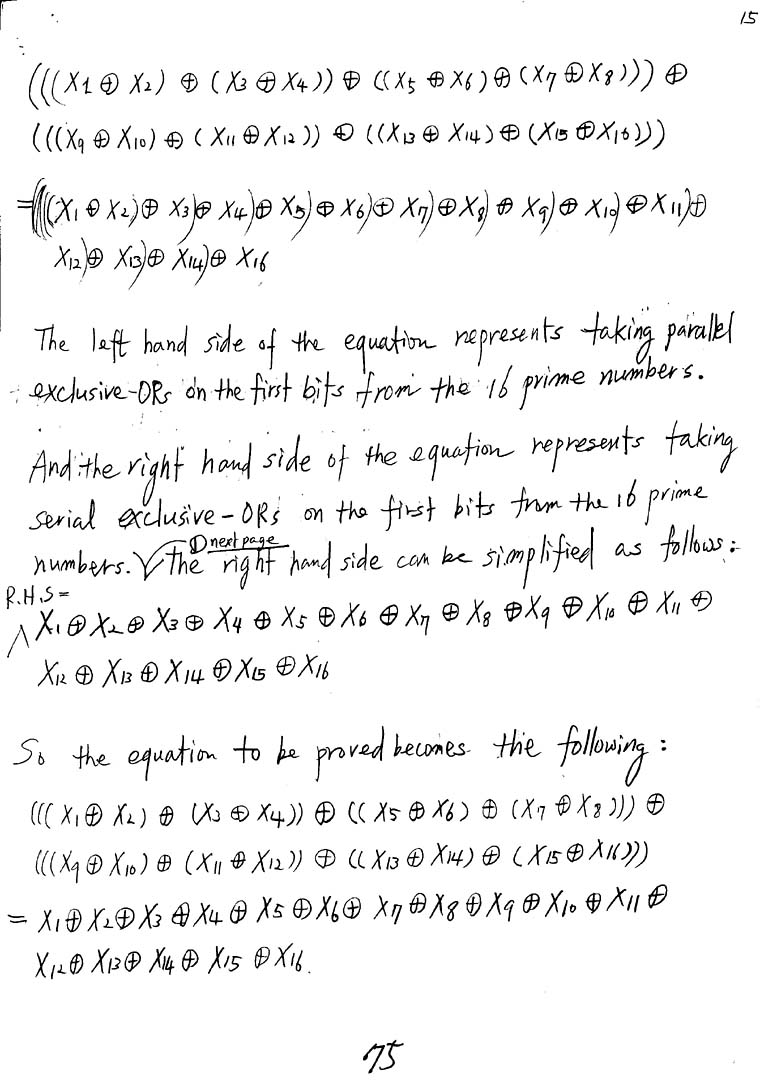 15
(((X1 ⊕ X2) ⊕ (X3 ⊕ X4)) ⊕ ((X5 ⊕ X6) ⊕ (X7 ⊕ X8))) ⊕
(((X9 ⊕ X10) ⊕ (X11 ⊕ X12)) ⊕ ((X13 ⊕ X14) ⊕ (X15 ⊕ X16)))
=((((X1 ⊕ X2) ⊕ X3) ⊕ X4) ⊕ X5) ⊕ X6) ⊕ X7) ⊕ X8) ⊕ X9) ⊕ X10) ⊕ X11) ⊕
X12) ⊕ X13) ⊕ X14) ⊕ X16
The left hand side of the equation represents taking parallel
exclusive-ORs on the first bits from the 16 prime numbers.
And the right hand side of the equation represents taking
serial exclusive-ORs on the first bits from the 16 prime
① next page
numbers. The right hand side can be simplified as follows:
R.H.S =
X1 ⊕ X2 ⊕ X3 ⊕ X4 ⊕ X5 ⊕ X6 ⊕ X7 ⊕ X8 ⊕ X9 ⊕ X10 ⊕ X11 ⊕
X12 ⊕ X13 ⊕ X14 ⊕ X15 ⊕ X16
So the equation to be proved becomes the following:
(((X1 ⊕ X2) ⊕ (X3 ⊕ X4)) ⊕ ((X5 ⊕ X6) ⊕ (X7 ⊕ X8))) ⊕
(((X9 ⊕ X10) ⊕ (X11 ⊕ X12)) ⊕ ((X13 ⊕ X14) ⊕ (X15 ⊕ X16)))
= X1 ⊕ X2 ⊕ X3 ⊕ X4 ⊕ X5 ⊕ X6 ⊕ X7 ⊕ X8 ⊕ X9 ⊕ X10 ⊕ X11 ⊕
X12 ⊕ X13 ⊕ X14 ⊕ X15 ⊕ X16.
75